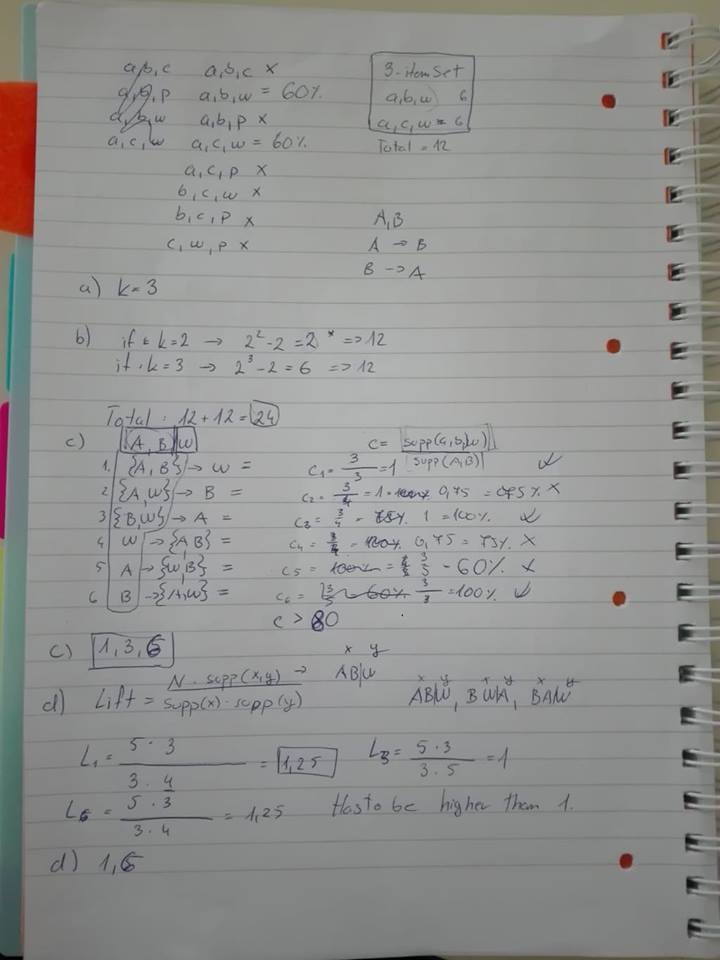 a,b,c a,b,c x
a,b,p a,b,w = 60%
a,b,w a,b,p x
a,c,w a,c,w = 60%
a,c,p x
b,c,w x
b,c,p x
c,w,p x
3-itemset
a,b,w 6
a,c,w = 6
Total = 12
A,B
A → B
B → A
a) k=3
b) if k=2 → 2²-2 = 2 * => 12
if k=3 → 2³-2 = 6 => 12
Total : 12+12 = 24
c) {A,B}|W c = supp(a,b,w) / supp(A,B)
1. {A,B} → W = c₁ = 3/3 = 1 ✓
2 {A,W} → B = c₂ = 3/4 = 0,75 = 075% x
3 {B,W} → A = c₃ = 3/4 1 = 100% ✓
4 W → {A,B} = c₄ = 3/4 0,75 = 75% x
5 A → {W,B} = c₅ = 100% = 3/5 - 60% x
6 B → {A,W} = c₆ = 3/5 ~ 60% 3/3 = 100% ✓
c > 80
c) 1,3,6
d) Lift = N · supp(x,y) / supp(x) · supp(y) → x y AB|W
x y AB|W, x y BW|A, x y BA|W
L₁ = 5·3 / 3·4 = 1,25 L₃ = 5·3 / 3·5 = 1
L₆ = 5·3 / 3·4 = 1,25 Has to be higher than 1.
d) 1,6